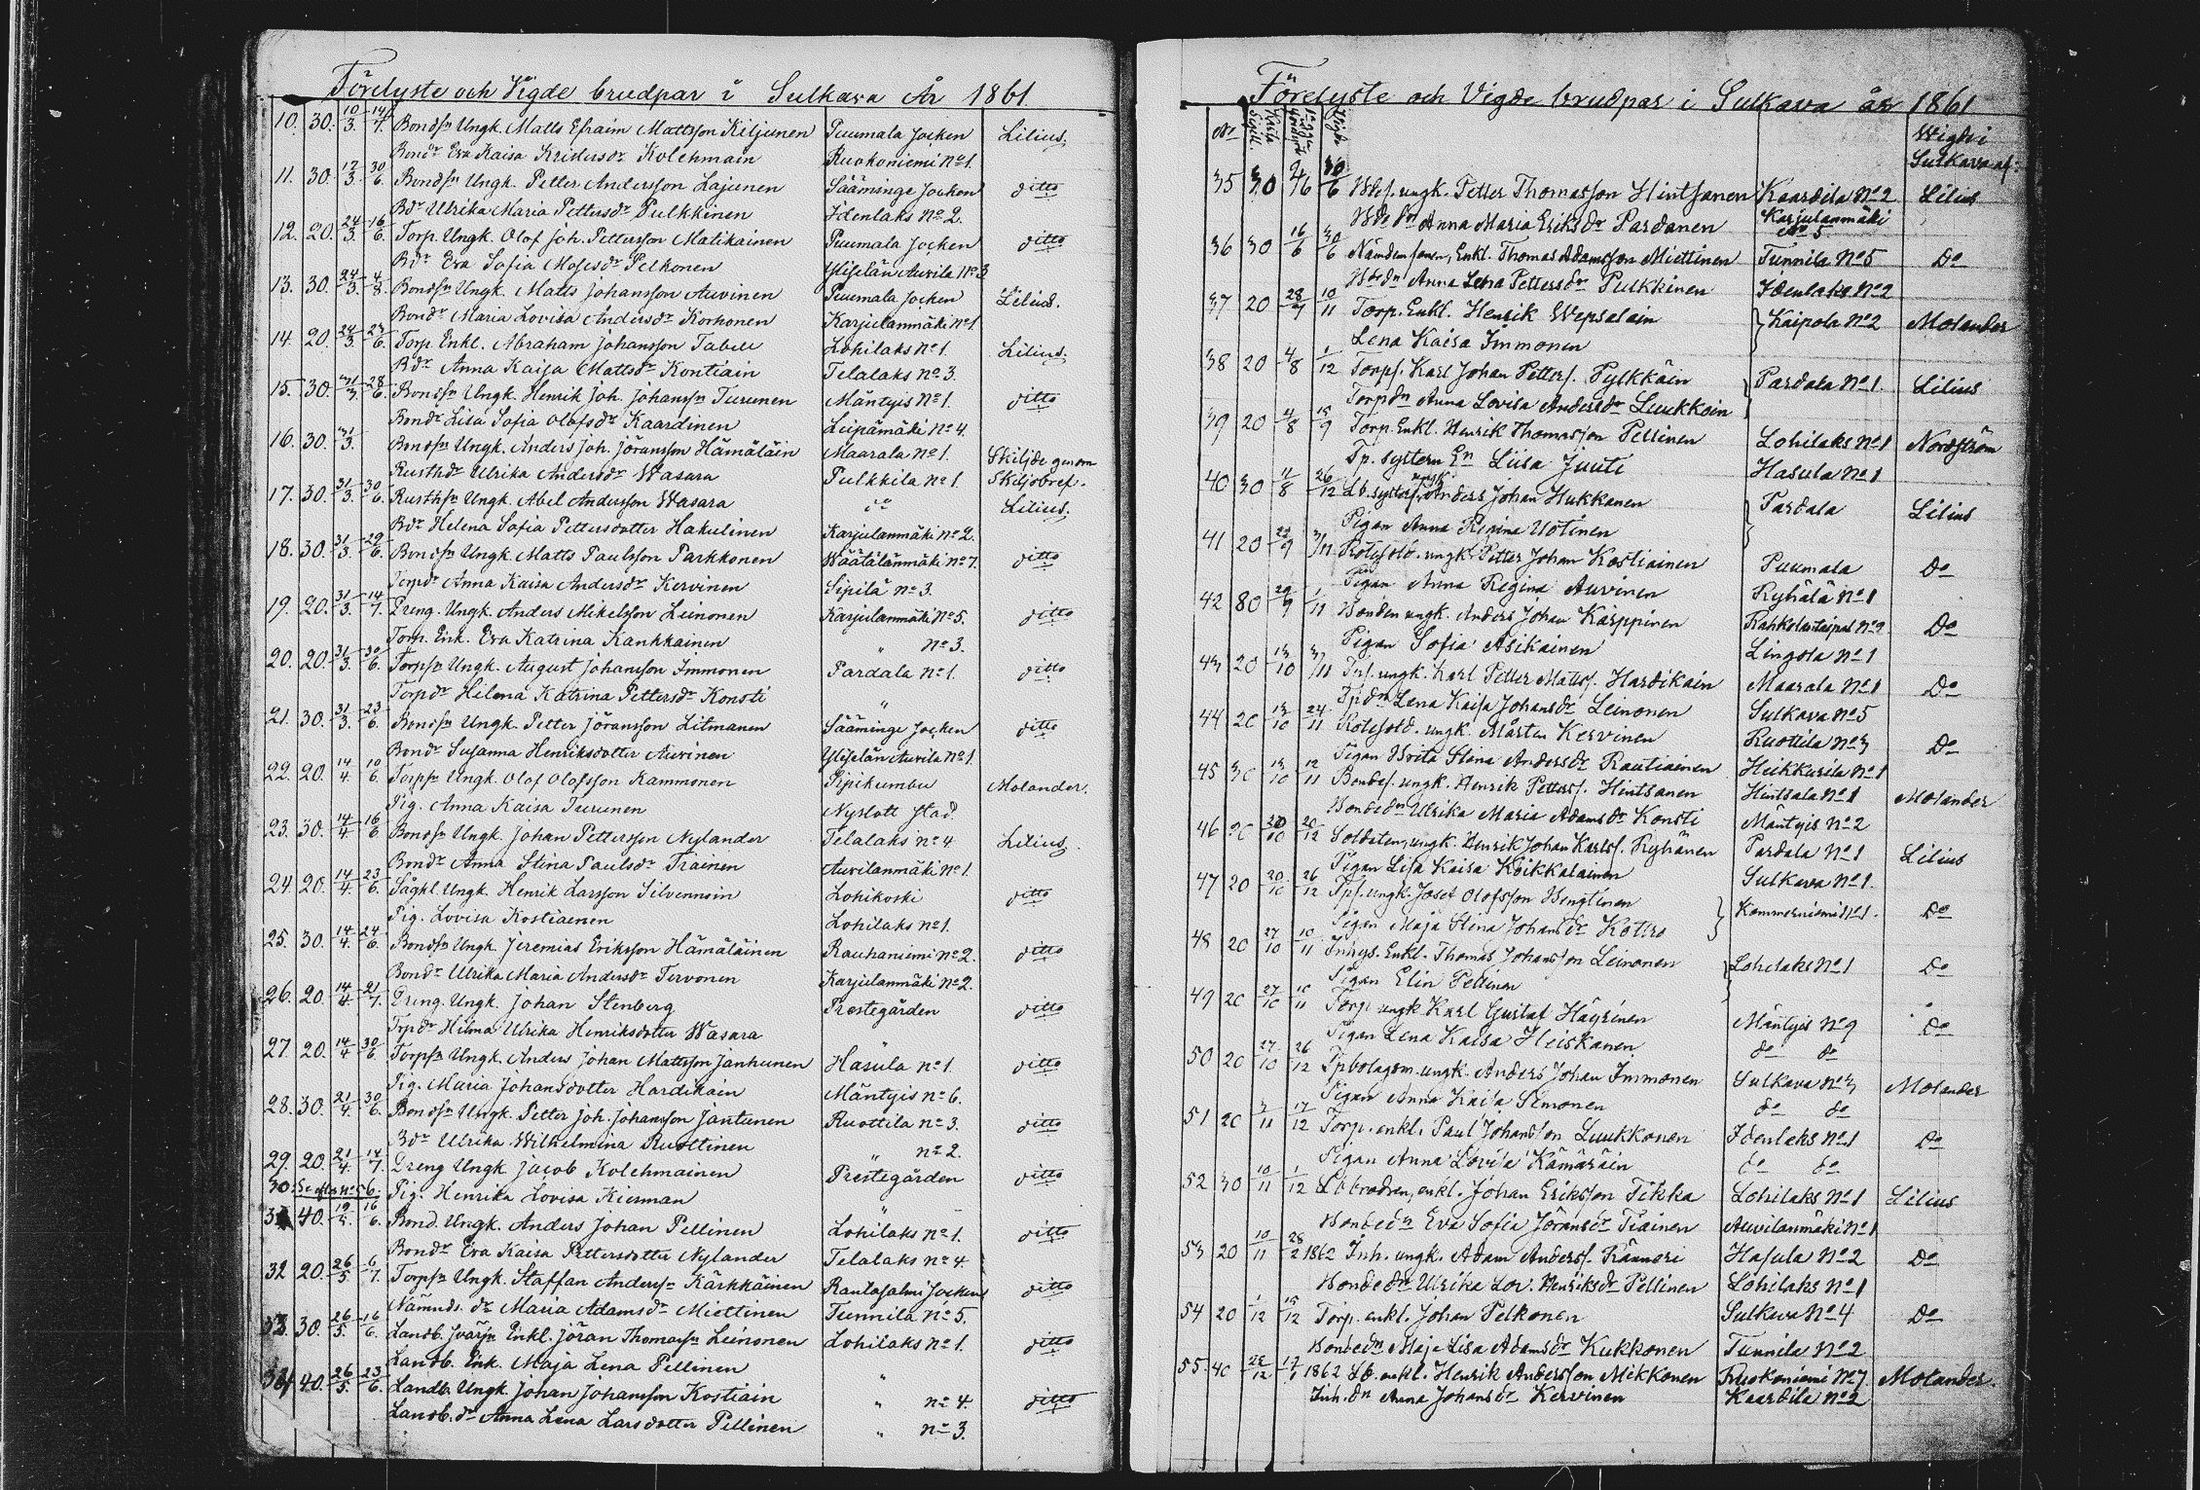 Förelyste och Vigde brudpar i Sulkava År 1861
10. 30. 10/3. 14/7. Bondsn Ungk. Matts Efraim Mattsson Kiljunen Puumala Socken Lilius.
Bondr Eva Kaisa Kristersdr Kolehmain Ruokoniemi No 1.
11. 30. 17/3. 30/6. Bondsn Ungk. Petter Andersson Lajunen Sääminge Socken ditto
Bdr Ulrika Maria Pettersdr Pulkkinen Idenlaks No 2.
12. 20. 24/3. 16/6. Torp. Ungk. Olof Joh. Pettersson Malikainen Puumala Socken ditto
Bdr Eva Sofia Mosesdr Pelkonen Yliselän Auvila No 3
13. 30. 24/3. 4/8. Bondsn Ungk. Matts Johansson Auvinen Puumala Socken Lilius.
Bondr Maria Lovisa Andersdr Korhonen Karjulanmäki No 1.
14. 20. 24/3. 23/6. Torp. Enkl. Abraham Johansson Tabell Lohilaks No 1. Lilius.
Bdr Anna Kaisa Mattsdr Kontiain Telalaks No 3.
15. 30. 31/3. 28/6. Bondsn Ungk. Henrik Joh. Johanssn Turunen Mäntyis No 1. ditto
Bondr Lisa Sofia Olofsdr Kaardinen Leipämäki No 4.
16. 30. 31/3. Bondsn Ungk. Anders Joh. Jöransson Hämäläin Maarala No 1. Skiljde genom
Rusthdr Ulrika Andersdr Wasara Pulkkila No 1. Skiljobref.
17. 30. 31/3. 30/6. Rusthsn Ungk Abel Andersson Wasara do Lilius.
Bdr Helena Sofia Pettersdotter Hakulinen Karjulanmäki No 2.
18. 30. 31/3. 29/6. Bondsn Ungk Matts Paulsson Parkkonen Wäätälänmäki No 7. ditto
Torpdr Anna Kaisa Andersdr Kervinen Sipilä No 3.
19. 20. 31/3. 14/7. Dreng. Ungk. Anders Mikelsson Leinonen Karjulanmäki No 5. ditto
Torp. Enk. Eva Katrina Kankkainen " No 3.
20. 20. 31/3. 30/6. Torpsn Ungk. August Johansson Immonen Pardala No 1. ditto
Torpdr Helena Katrina Pettersdr Konsti "
21. 30. 31/3. 23/6. Bondsn Ungk. Petter Jöransson Litmanen Sääminge Socken ditto
Bondr Susanna Henriksdotter Auvinen Yliselän Auvila No 1
22. 20. 14/4. 10/6. Torpsn Ungk. Olof Olofsson Kammonen Pipikumbu Molander.
Pig. Anna Kaisa Turunen Nyslott Stad.
23. 30. 14/4. 16/6 Bondsn Ungk. Johan Pettersson Nylander Telalaks No 4 Lilius.
Bondr Anna Stina Paulsdr Träinen Auvilanmäki No 1.
24. 20. 14/4. 23/6. Sågkl Ungk. Henrik Larsson Silvennoin Lohikoski ditto
Pig. Lovisa Kostiaenen Lohilaks No 1.
25. 30. 14/4. 24/6. Bondsn Ungk. Jeremias Eriksson Hämäläinen Rauhaniemi No 2. ditto
Bondr Ulrika Maria Andersdr Tervonen Karjulanmäki No 2.
26. 20. 14/4. 21/7. Dreng. Ungk. Johan Stenberg Prestegården ditto
Torpdr Hilma Ulrika Henriksdotter Wasara "
27. 20. 14/4 30/6. Torpsn Ungk. Anders Johan Mattsson Janhunen Hasula No 1. ditto
Pig. Maria Johansdotter Hardikain Mäntyis No 6.
28. 30. 21/4. 30/6. Bondsn Ungk. Petter Joh. Johansson Jantunen Ruottila No 3. ditto
Bdr Ulrika Wilhelmina Ruottinen " No 2.
29. 20. 21/4. 14/7. Dreng Ungk Jacob Kolehmainen Prestegården ditto
30 Se efter No 56. Pig. Henrika Lovisa Kierman "
31 40. 19/5. 16/6. Bond. Ungk. Anders Johan Pellinen Lohilaks No 1. ditto
Bondr Eva Kaisa Pettersdotter Nylander Telalaks No 4
32 20. 26/5 6/7. Torpsn Ungk. Staffan Anderssn Kärkkäinen Rantasalmi Socken ditto
Nämnds. dr Maria Adamsdr Miettinen Tunnila No 5.
33. 30. 26/5. 16/6. Landb. Svärsn Enkl. Jöran Thomassn Leinonen Lohilaks No 1. ditto
Landb. Enk. Maja Lena Pellinen "
34 40. 26/5. 23/6. Landb. Ungk Johan Johansson Kostiain " No 4. ditto
Landb. dr Anna Lena Larsdotter Pellinen " No 3.
Förelyste och Vigde brudpar i Sulkava år 1861
No Vigde Wigde i
Sulkava af:
35 30 2/6 30/6 Bdes. ungk. Petter Thomasson Hintsanen Kaardila No 2 Lilius
Bde dn Anna Maria Eriksdr Pardanen Karjulanmäki No 5
36 30 16/6 30/6 Nämdemsonen, Enkl. Thomas Adamsson Miettinen Tunnila No 5 Do
Bdedn Anna Lena Pettersdr Pulkkinen Idenlaks No 2
37 20 28/7 10/11 Torp. Enkl. Henrik Wepsalain } Kaipola No 2 Molander
Lena Kaisa Immonen
38 20 4/8 1/12 Torps. Karl Johan Petters. Pylkkäin } Pardala No 1. Lilius
Torpdn Anna Lovisa Andersdr Luukkoin
39 20 4/8 15/9 Torp. Enkl. Henrik Thomasson Pellinen Lohilaks No 1 Nordström
Tp. systern En Liisa Juuti Hasula No 1
40 30 11/8 26/12 Lb. systers. ungk. Anders Johan Hukkanen } Pardala Lilius
Pigan Anna Regina Uotinen
41 20 22/9 3/11 Rotesold. ungk. Petter Johan Kostiainen Puumala Do
Pigan Anna Regina Auvinen Ryhälä No 1
42 80 29/9 1/11 Bonden ungk. Anders Johan Karppinen Do
Pigan Sofia Asikainen Lingola No 1
43 20 13/10 3/11 ungk. Karl Petter Matts. Hardikain Maarala No 1 Do
Tpdn Lena Kaisa Johansdr Leinonen Sulkava No 5
44 20 13/10 24/11 Rotesold. ungk. Mårten Kervinen Ruottila No 3 Do
Pigan Brita Stina Andersdr Rautiainen Heikkurila No 1
45 30 13/10 12/11 Bondes. ungk. Henrik Petters. Hintsanen Hintsala No 1 Molander
Bondedn Ulrika Maria Adamsdr Konsti Mäntyis No 2
46 20 20/10 20/12 Soldaten, ungk. Henrik Johan Karls. Ryhänen Pardala No 1 Lilius
Pigan Lisa Kaisa Koikkalainen Sulkava No 1.
47 20 20/10 26/12 Tps. ungk. Josef Olofsson Bengtinen } Kammerniemi No 1. Do
Pigan Maja Stina Johansdr Kottro
48 20 27/10 10/11 Inhys. Enkl. Thomas Johansson Leinonen } Lohilaks No 1 Do
Pigan Elin Pellinen
49 20 27/10 10/11 Torp. ungk Karl Gustaf Häyrinen Mäntyis No 9 Do
Pigan Lena Kaisa Heiskanen do do
50 20 27/10 26/12 Tpbolagsm. ungk. Anders Johan Immonen Sulkava No 3 Molander
Pigan Anna Kaisa Simonen do do
51 20 3/11 17/12 Torp. enkl. Paul Johansson Luukkonen Idenlaks No 1 Do
Pigan Anna Lovisa Kämäräin do do
52 30 10/11 1/12 Lbbrodren, enkl. Johan Eriksson Tikka Lohilaks No 1 Lilius
Bondedn Eva Sofia Jöransdr Tiainen Auvilanmäki No 1
53 20 10/11 28/2 1862 Inh. ungk. Adam Anders. Räämeri Hasula No 2 Do
Bondedn Ulrika Lov. Henriksdr Pellinen Lohilaks No 1
54 20 1/12 15/12 Torp. enkl. Johan Pelkonen Sulkava No 4 Do
Bondedn Maja Lisa Adamsdr Kukkonen Tunnila No 2
55. 40 1862 Lb. enkl. Henrik Andersson Mikkonen Ruokoniemi No 7 Molander.
Inh. dn Anna Johansdr Kervinen Kaardila No 2